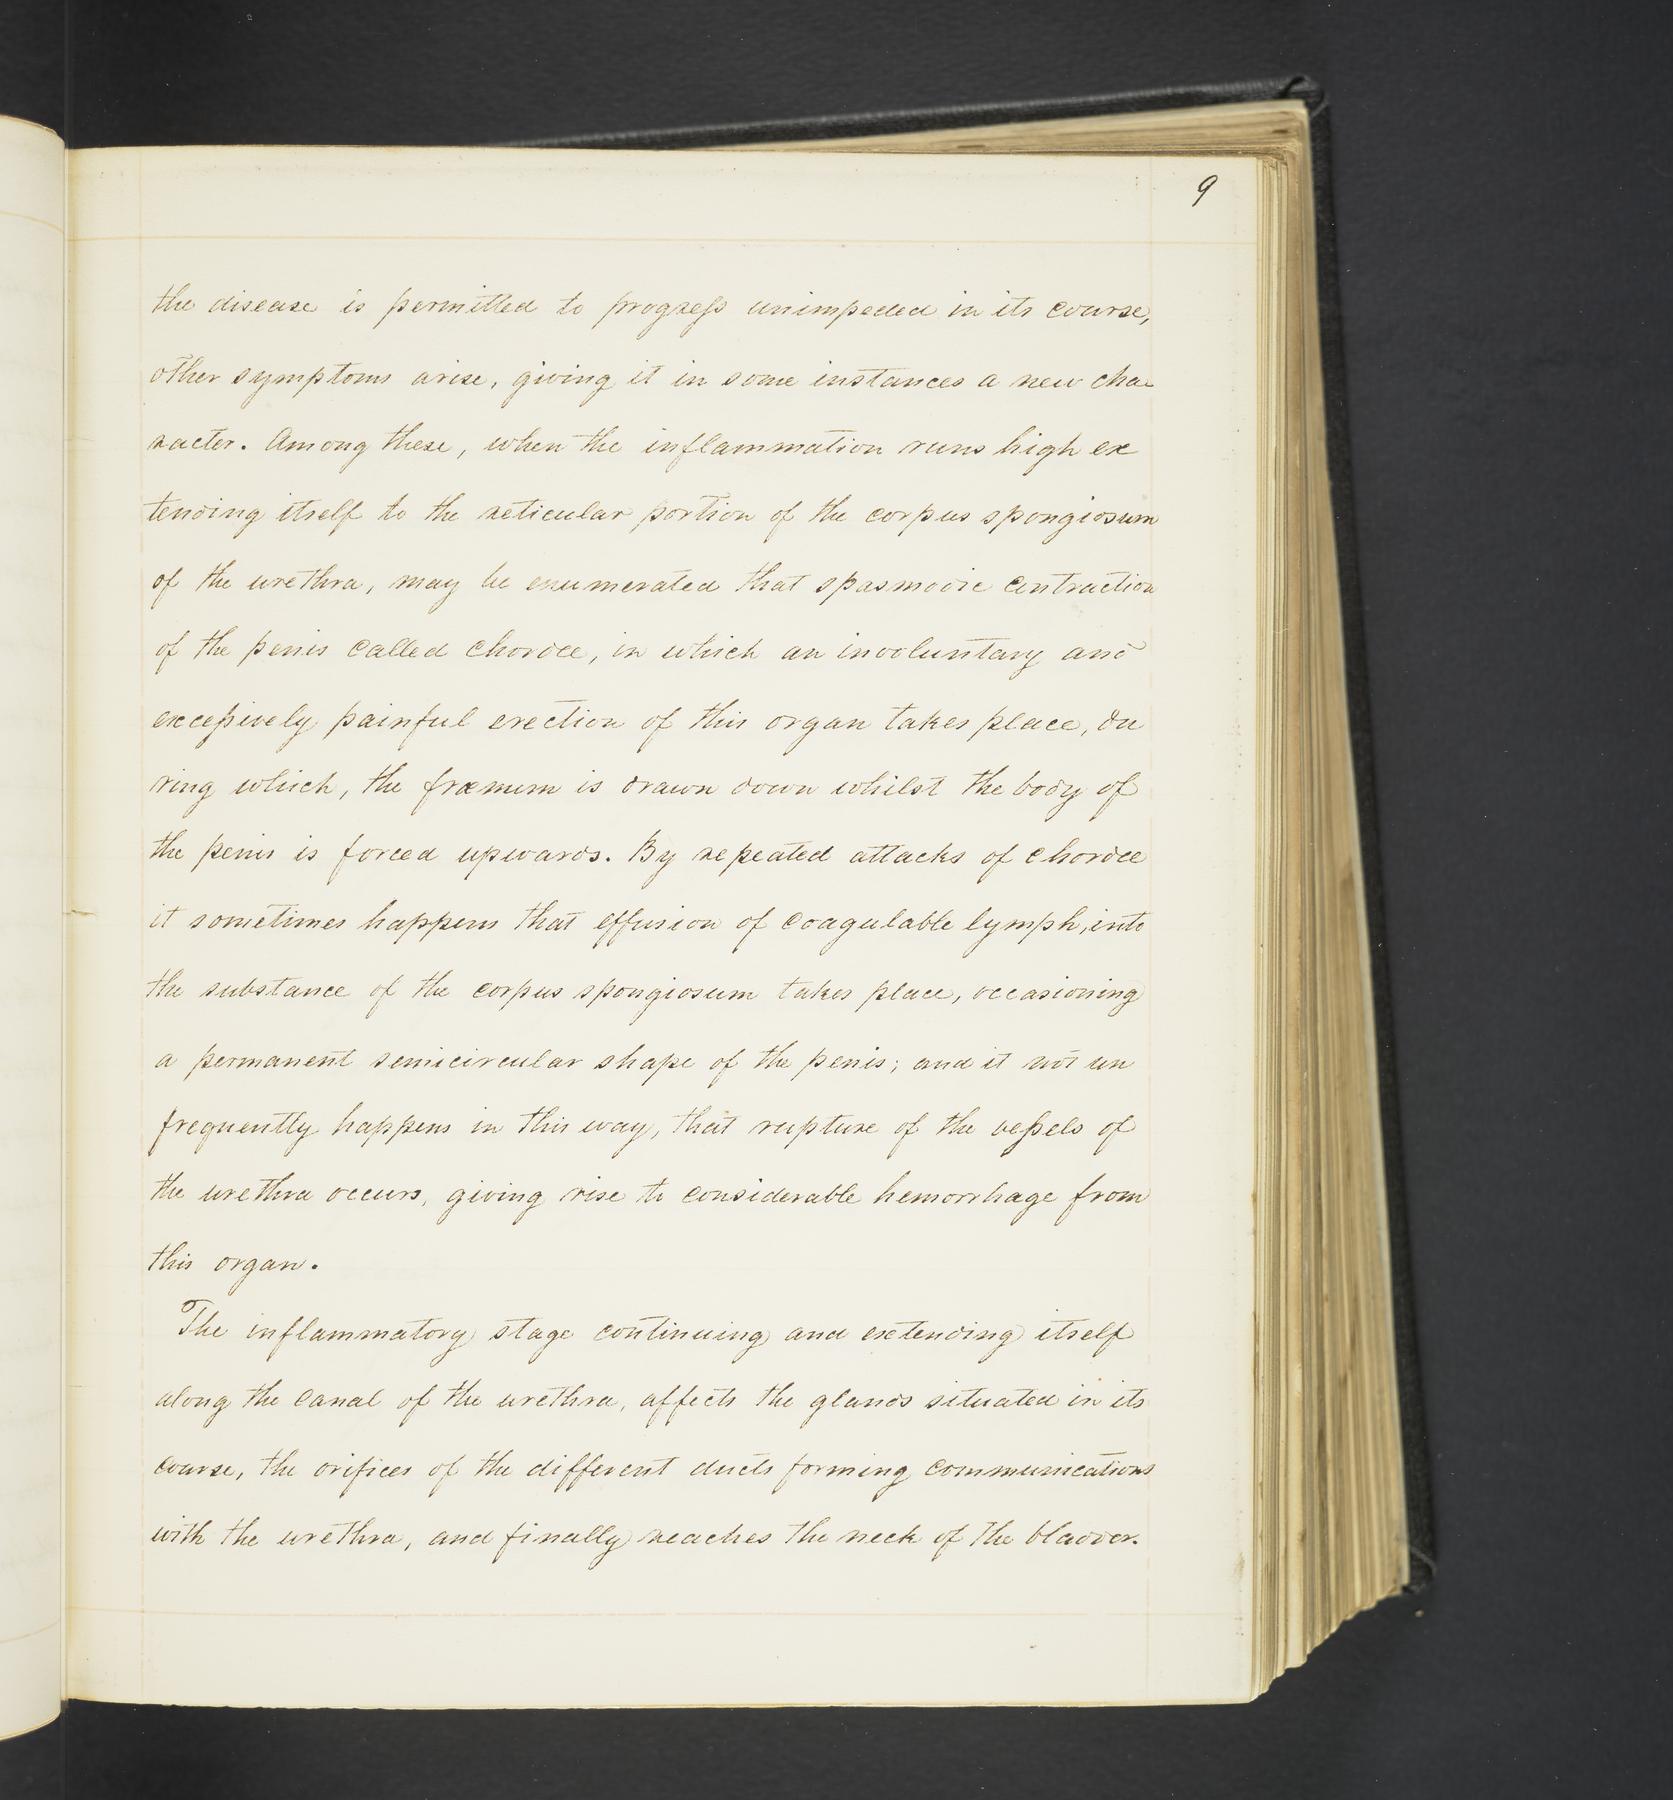 9
the disease is permitted to progress unimpeded in its course,
other symptoms arise, giving it in some instances a new cha
racter. Among these, when the inflammation runs high ex
tending itself to the reticular portion of the corpus spongiosum
of the urethra, may be enumerated that spasmodic contraction
of the penis called chordee, in which an involuntary and
excessively painful erection of this organ takes place, du
ring which, the frænum is drawn down whilst the body of
the penis is forced upwards. By repeated attacks of chordee
it sometimes happens that effusion of coagulable lymph, into
the substance of the corpus spongiosum takes place, occasioning
a permanent semicircular shape of the penis; and it not un
frequently happens in this way, that rupture of the vessels of
the urethra occurs, giving rise to considerable hemorrhage from
this organ.
The inflammatory stage continuing and extending itself
along the canal of the urethra, affects the glands situated in its
course, the orifices of the different ducts forming communications
with the urethra, and finally reaches the neck of the bladder.